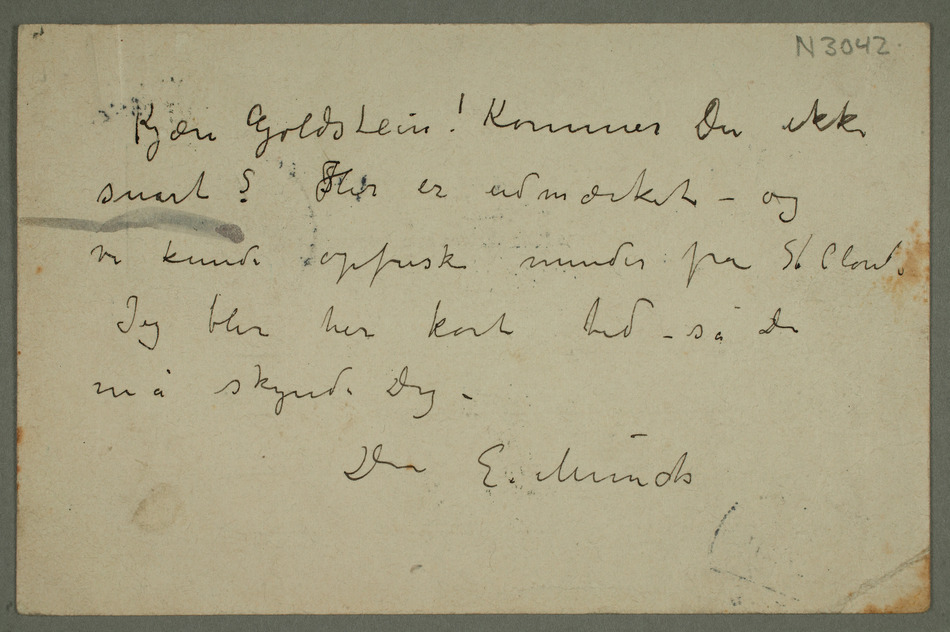 N3042
Kjære Goldstein! Kommer Du ikke
snart? Her er udmærket – og
vi kunde opfriske minder fra St Cloud.
Jeg blir her kort tid – så Du
må skynde Dig –
Din E. Munch